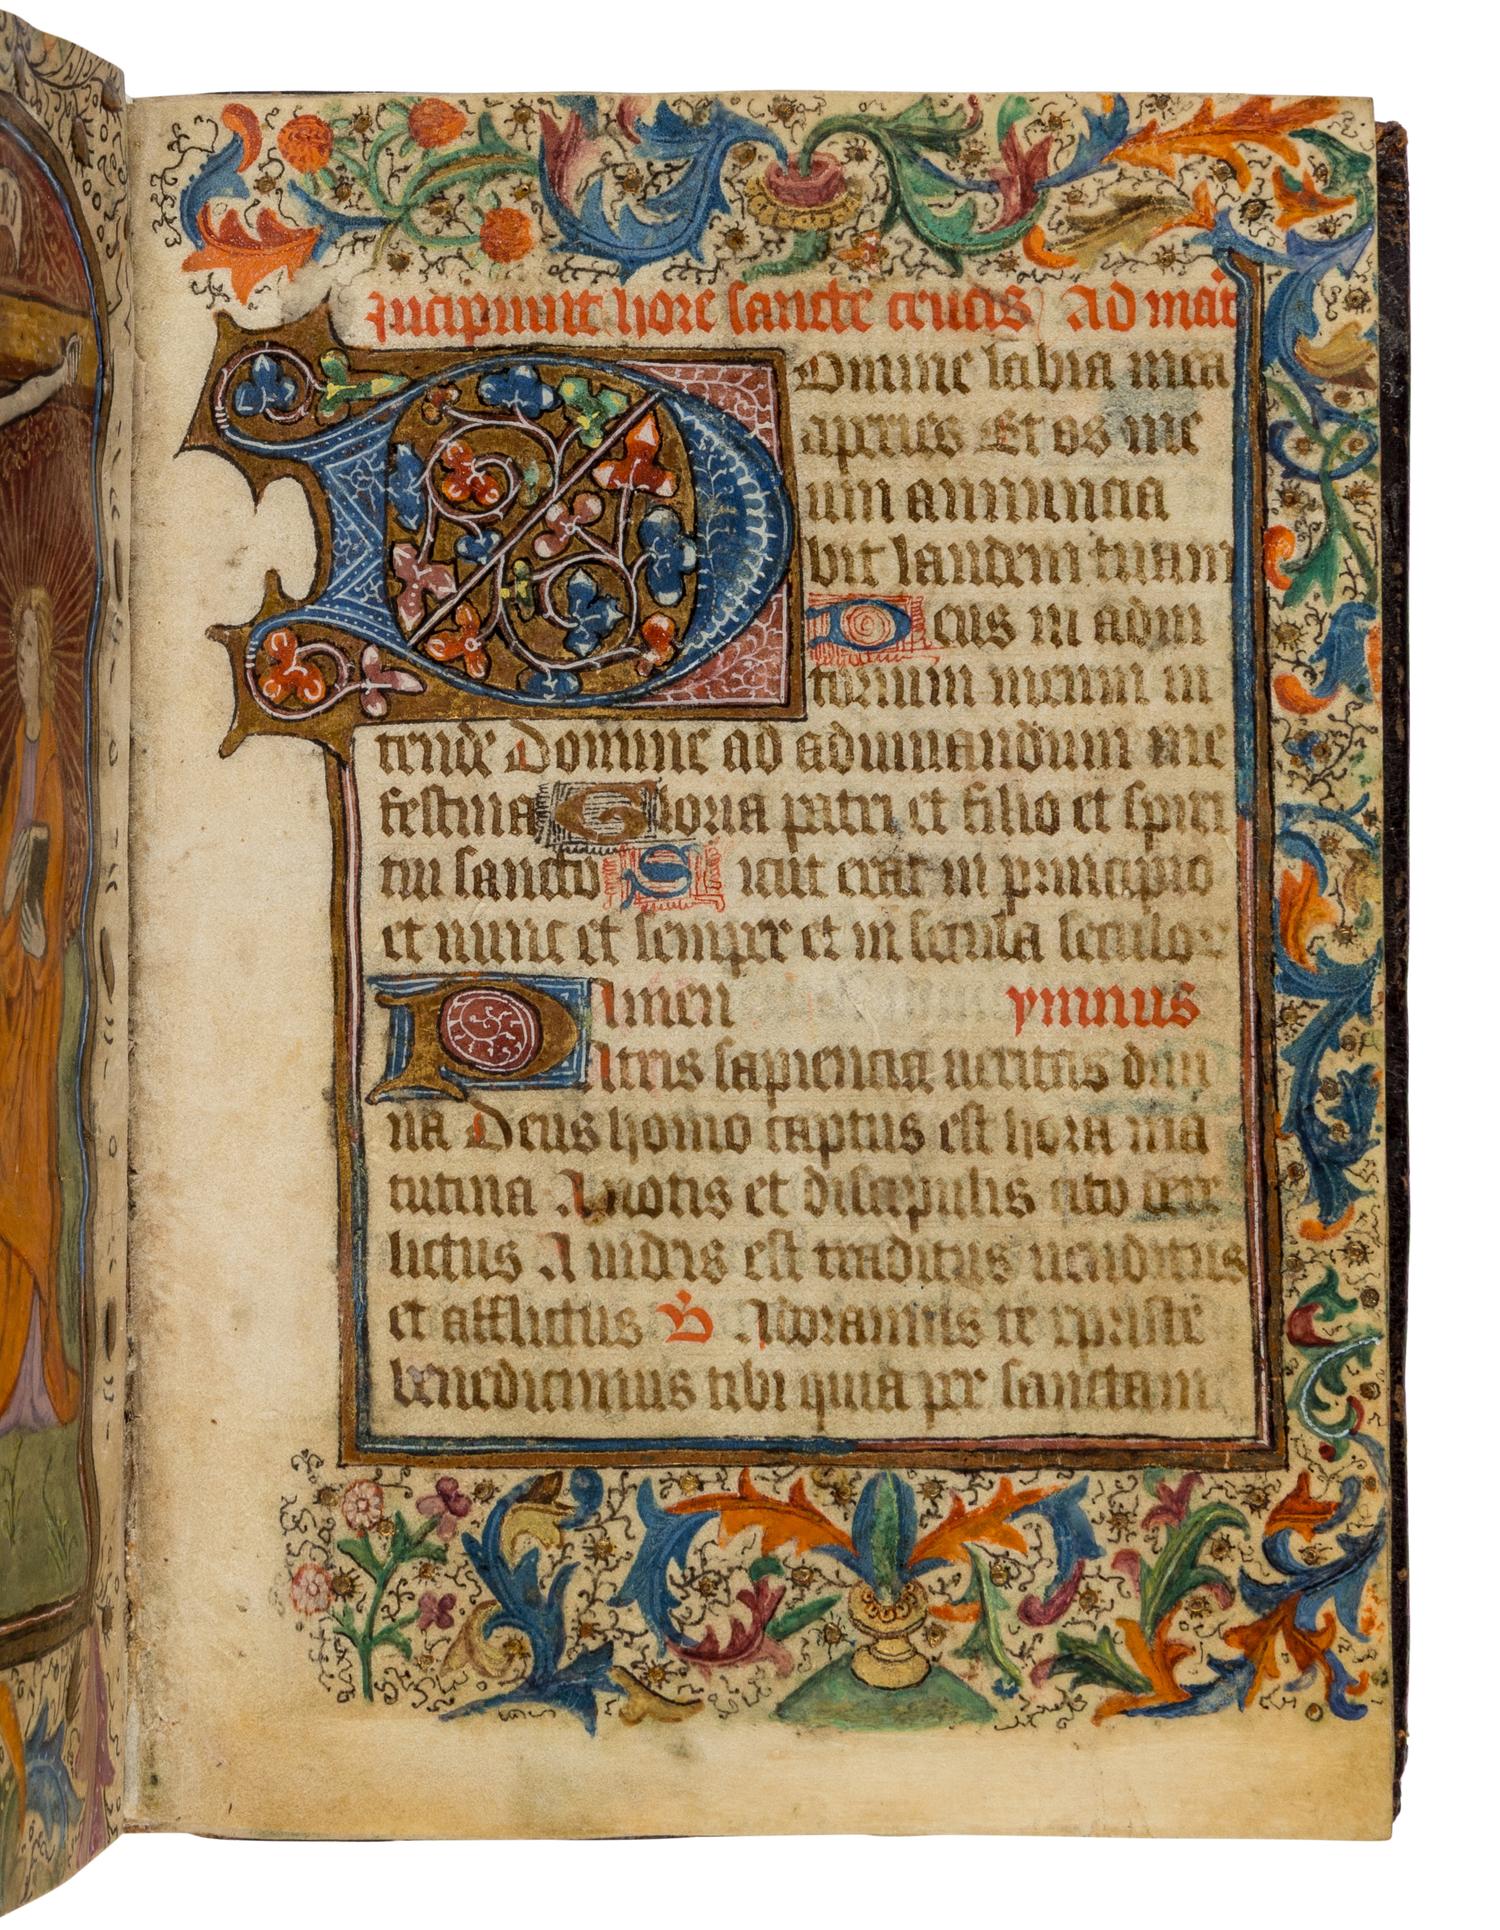 Incipiunt hore sancte crucis Ad mat
Domine labia mea
aperies Et os me
um annuncia
bit laudem tuam
Deus in adiu
torium meum in
tende Domine ad adiuuandum me
festina Gloria patri et filio et spiri
tui sancto Sicut erat in principio
et nunc et semper et in secula seculor
Amen ymnus
Patris sapiencia ueritas diui
na Deus homo captus est hora ma
tutina A notis et discipulis cito dere
lictus A iudeis est traditus uenditus
et afflictus V Adoramus te xpriste
benedicimus tibi quia per sanctam